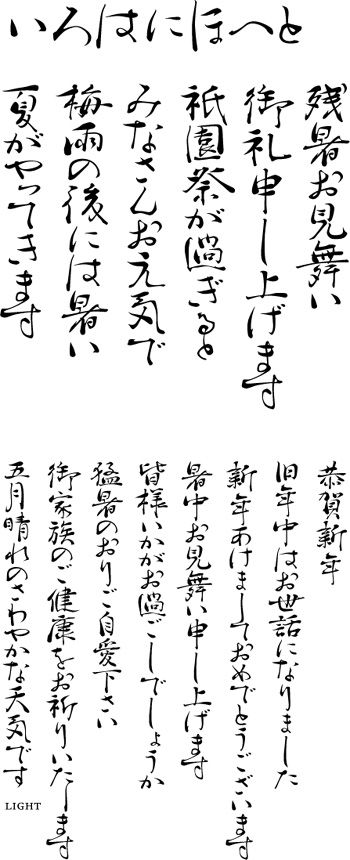 いろはにほへと
残暑お見舞い
御礼申し上げます
祇園祭が過ぎると
みなさんお元気で
梅雨の後には暑い
夏がやってきます
恭賀新年
旧年中はお世話になりました
新年あけましておめでとうございます
暑中お見舞い申し上げます
皆様いかがお過ごしでしょうか
猛暑のおりご自愛下さい
御家族のご健康をお祈りいたします
五月晴れのさわやかな天気です
LIGHT